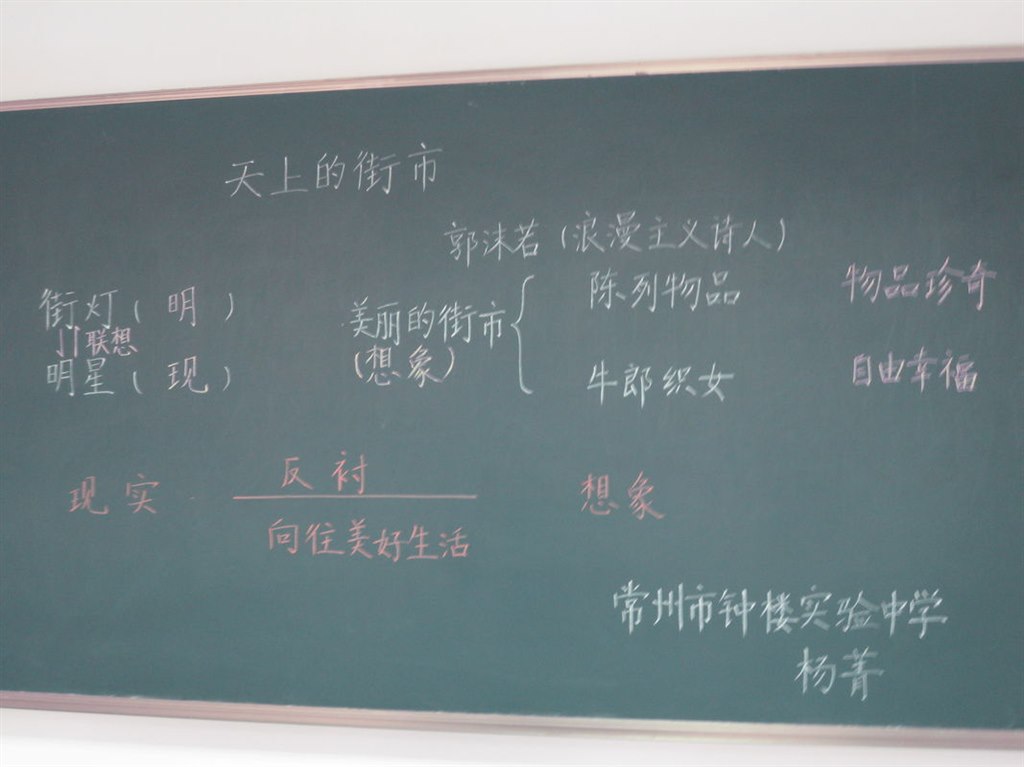 天上的街市
郭沫若(浪漫主义诗人)
街灯(明)
联想
明星(现)
美丽的街市
(想象)
陈列物品 物品珍奇
牛郎织女 自由幸福
现实 反衬 想象
向往美好生活
常州市钟楼实验中学
杨菁